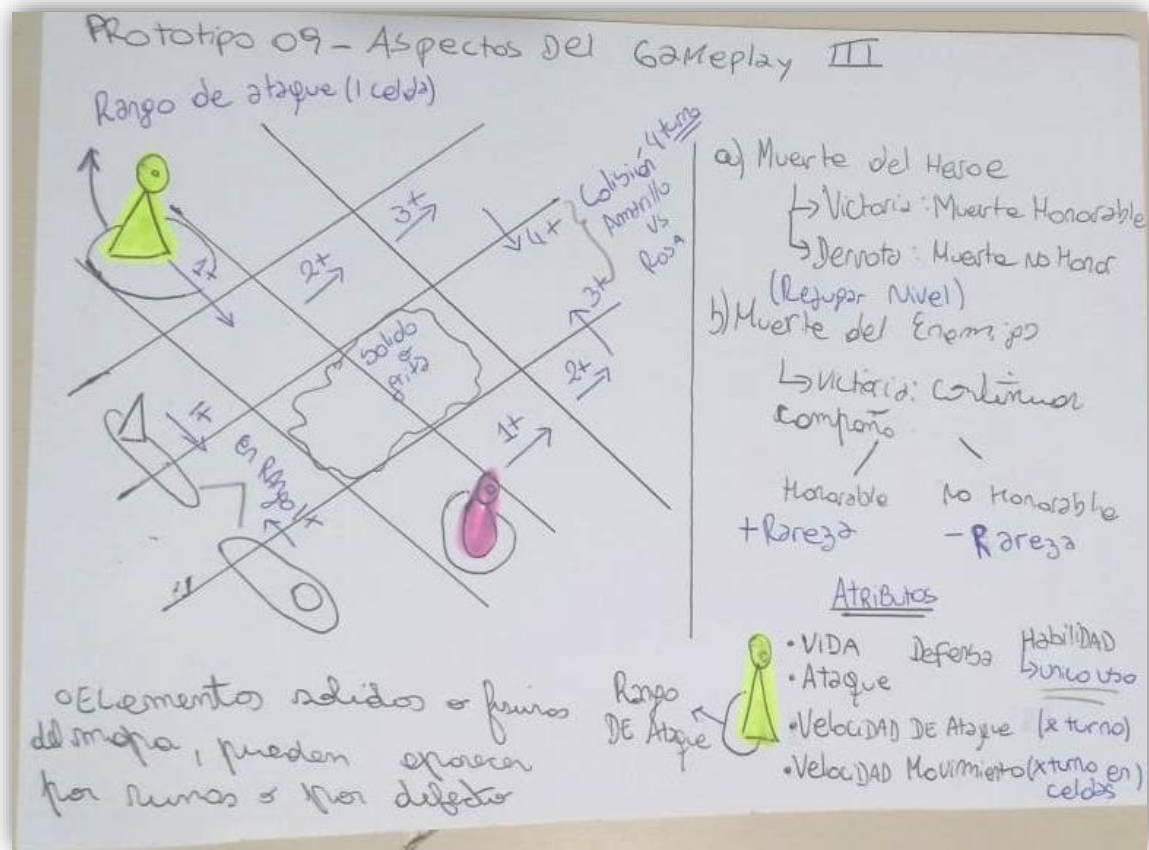 PRototipo 09 - Aspectos Del Gameplay III
Rango de ataque (1 celda)
1t
2t
3t
4t
Colisión - 4 turno
Amarillo
vs
Rosa
3t
2t
1t
Solido
o
grita
1t
en Rango 1t
a) Muerte del Heroe
↳ Victoria: Muerte Honorable
↳ Derrota: Muerte no Honor
(Rejugar Nivel)
b) Muerte del Enemigo
↳ Victoria: continuar
campaña
Honorable
No Honorable
+Rareza
-Rareza
Atributos
• VIDA
Defensa
HabiliDAD
↳ unico uso
• Ataque
• VelociDAD DE Ataque (x turno)
• VelociDAD Movimiento (x turno en)
celdas
Rango
DE Ataque
o ELementos solidos o
del mapa, pueden aparecer
por runas o por defecto